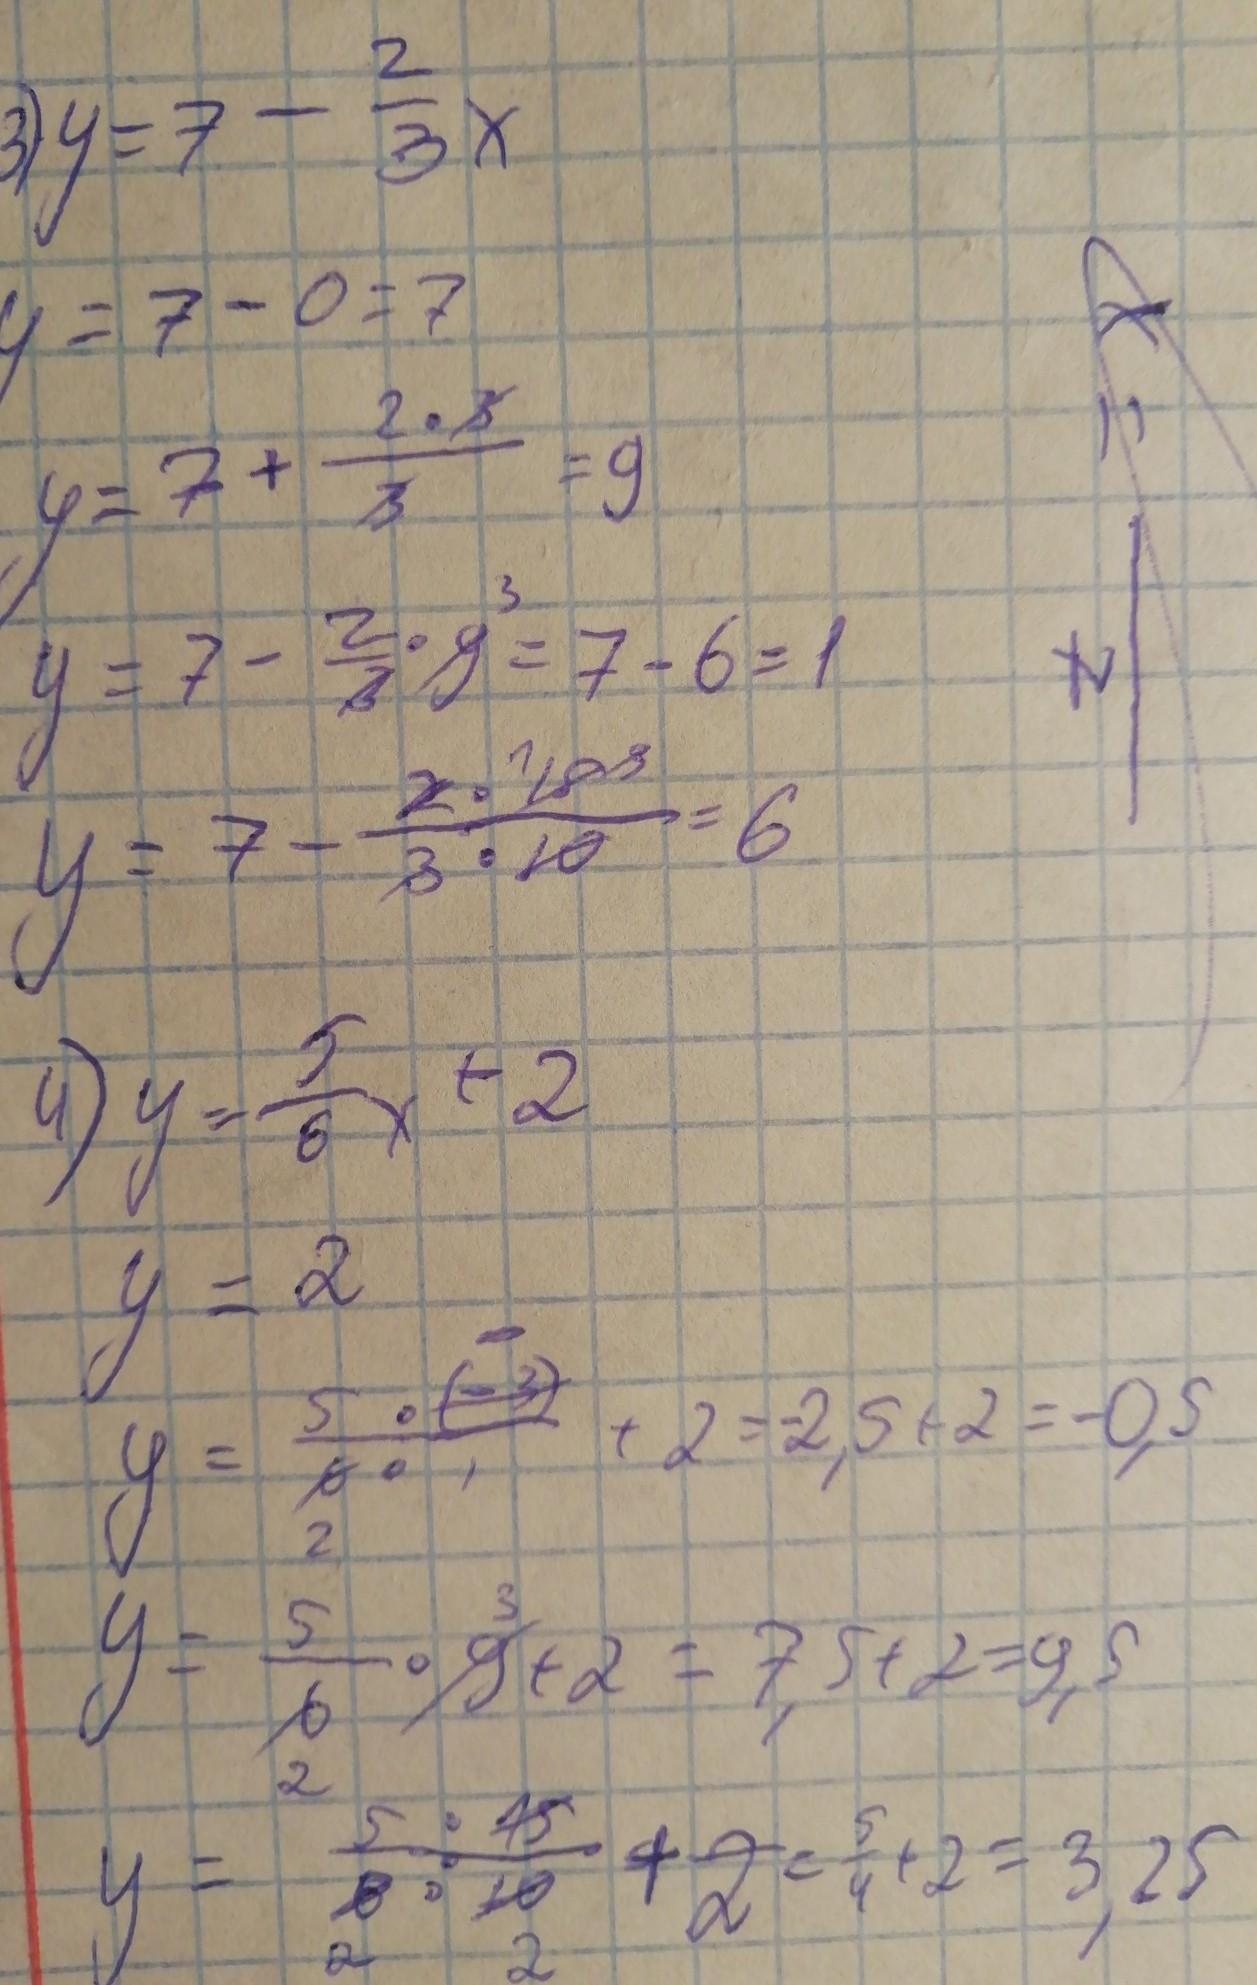 3) y = 7 - 2/3 x
y = 7 - 0 = 7
y = 7 + 2·3/3 = 9
y = 7 - 2/3 · 9 3 = 7 - 6 = 1
y = 7 - 2·15/3·10 = 6
4) y = 5/6 x + 2
y = 2
y = 5·(-3)/6·1 + 2 = -2,5 + 2 = -0,5
2
y = 5/6 · 9 3 + 2 = 7,5 + 2 = 9,5
2
y = 5·15/6·10 + 2 = 5/4 + 2 = 3,25
2 2